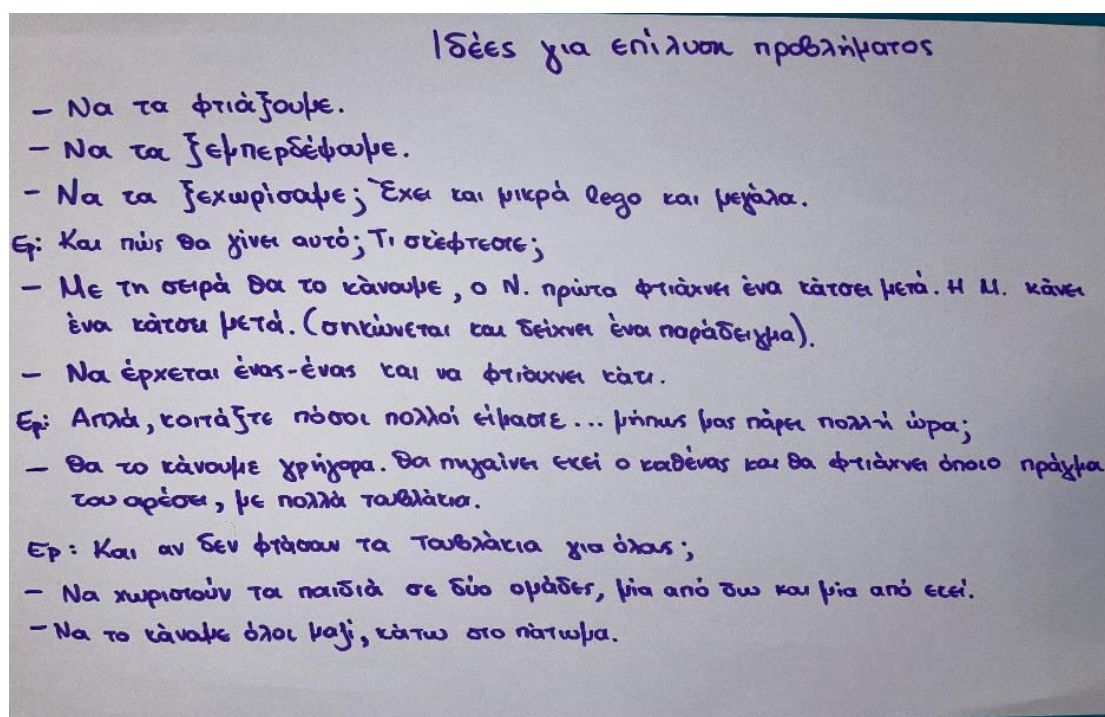 Ιδέες για επίλυση προβλήματος
- Να τα φτιάξουμε.
- Να τα ξεμπερδέψουμε.
- Να τα ξεχωρίσουμε; Έχει και μικρά lego και μεγάλα.
Ερ: Και πώς θα γίνει αυτό; Τι σκέφτεστε;
- Με τη σειρά θα το κάνουμε, ο Ν. πρώτα φτιάχνει ένα κάτσει μετά. Η Μ. κάνει
ένα κάτσει μετά. (σηκώνεται και δείχνει ένα παράδειγμα).
- Να έρχεται ένας-ένας και να φτιάχνει κάτι.
Ερ: Απλά, κοιτάξτε πόσοι πολλοί είμαστε... μήπως μας πάρει πολλή ώρα;
- Θα το κάνουμε γρήγορα. Θα πηγαίνει εκεί ο καθένας και θα φτιάχνει όποιο πράγμα
του αρέσει, με πολλά τουβλάκια.
Ερ: Και αν δεν φτάσουν τα τουβλάκια για όλους;
- Να χωριστούν τα παιδιά σε δύο ομάδες, μία από δω και μία από εκεί.
- Να το κάναμε όλοι μαζί, κάτω στο πάτωμα.